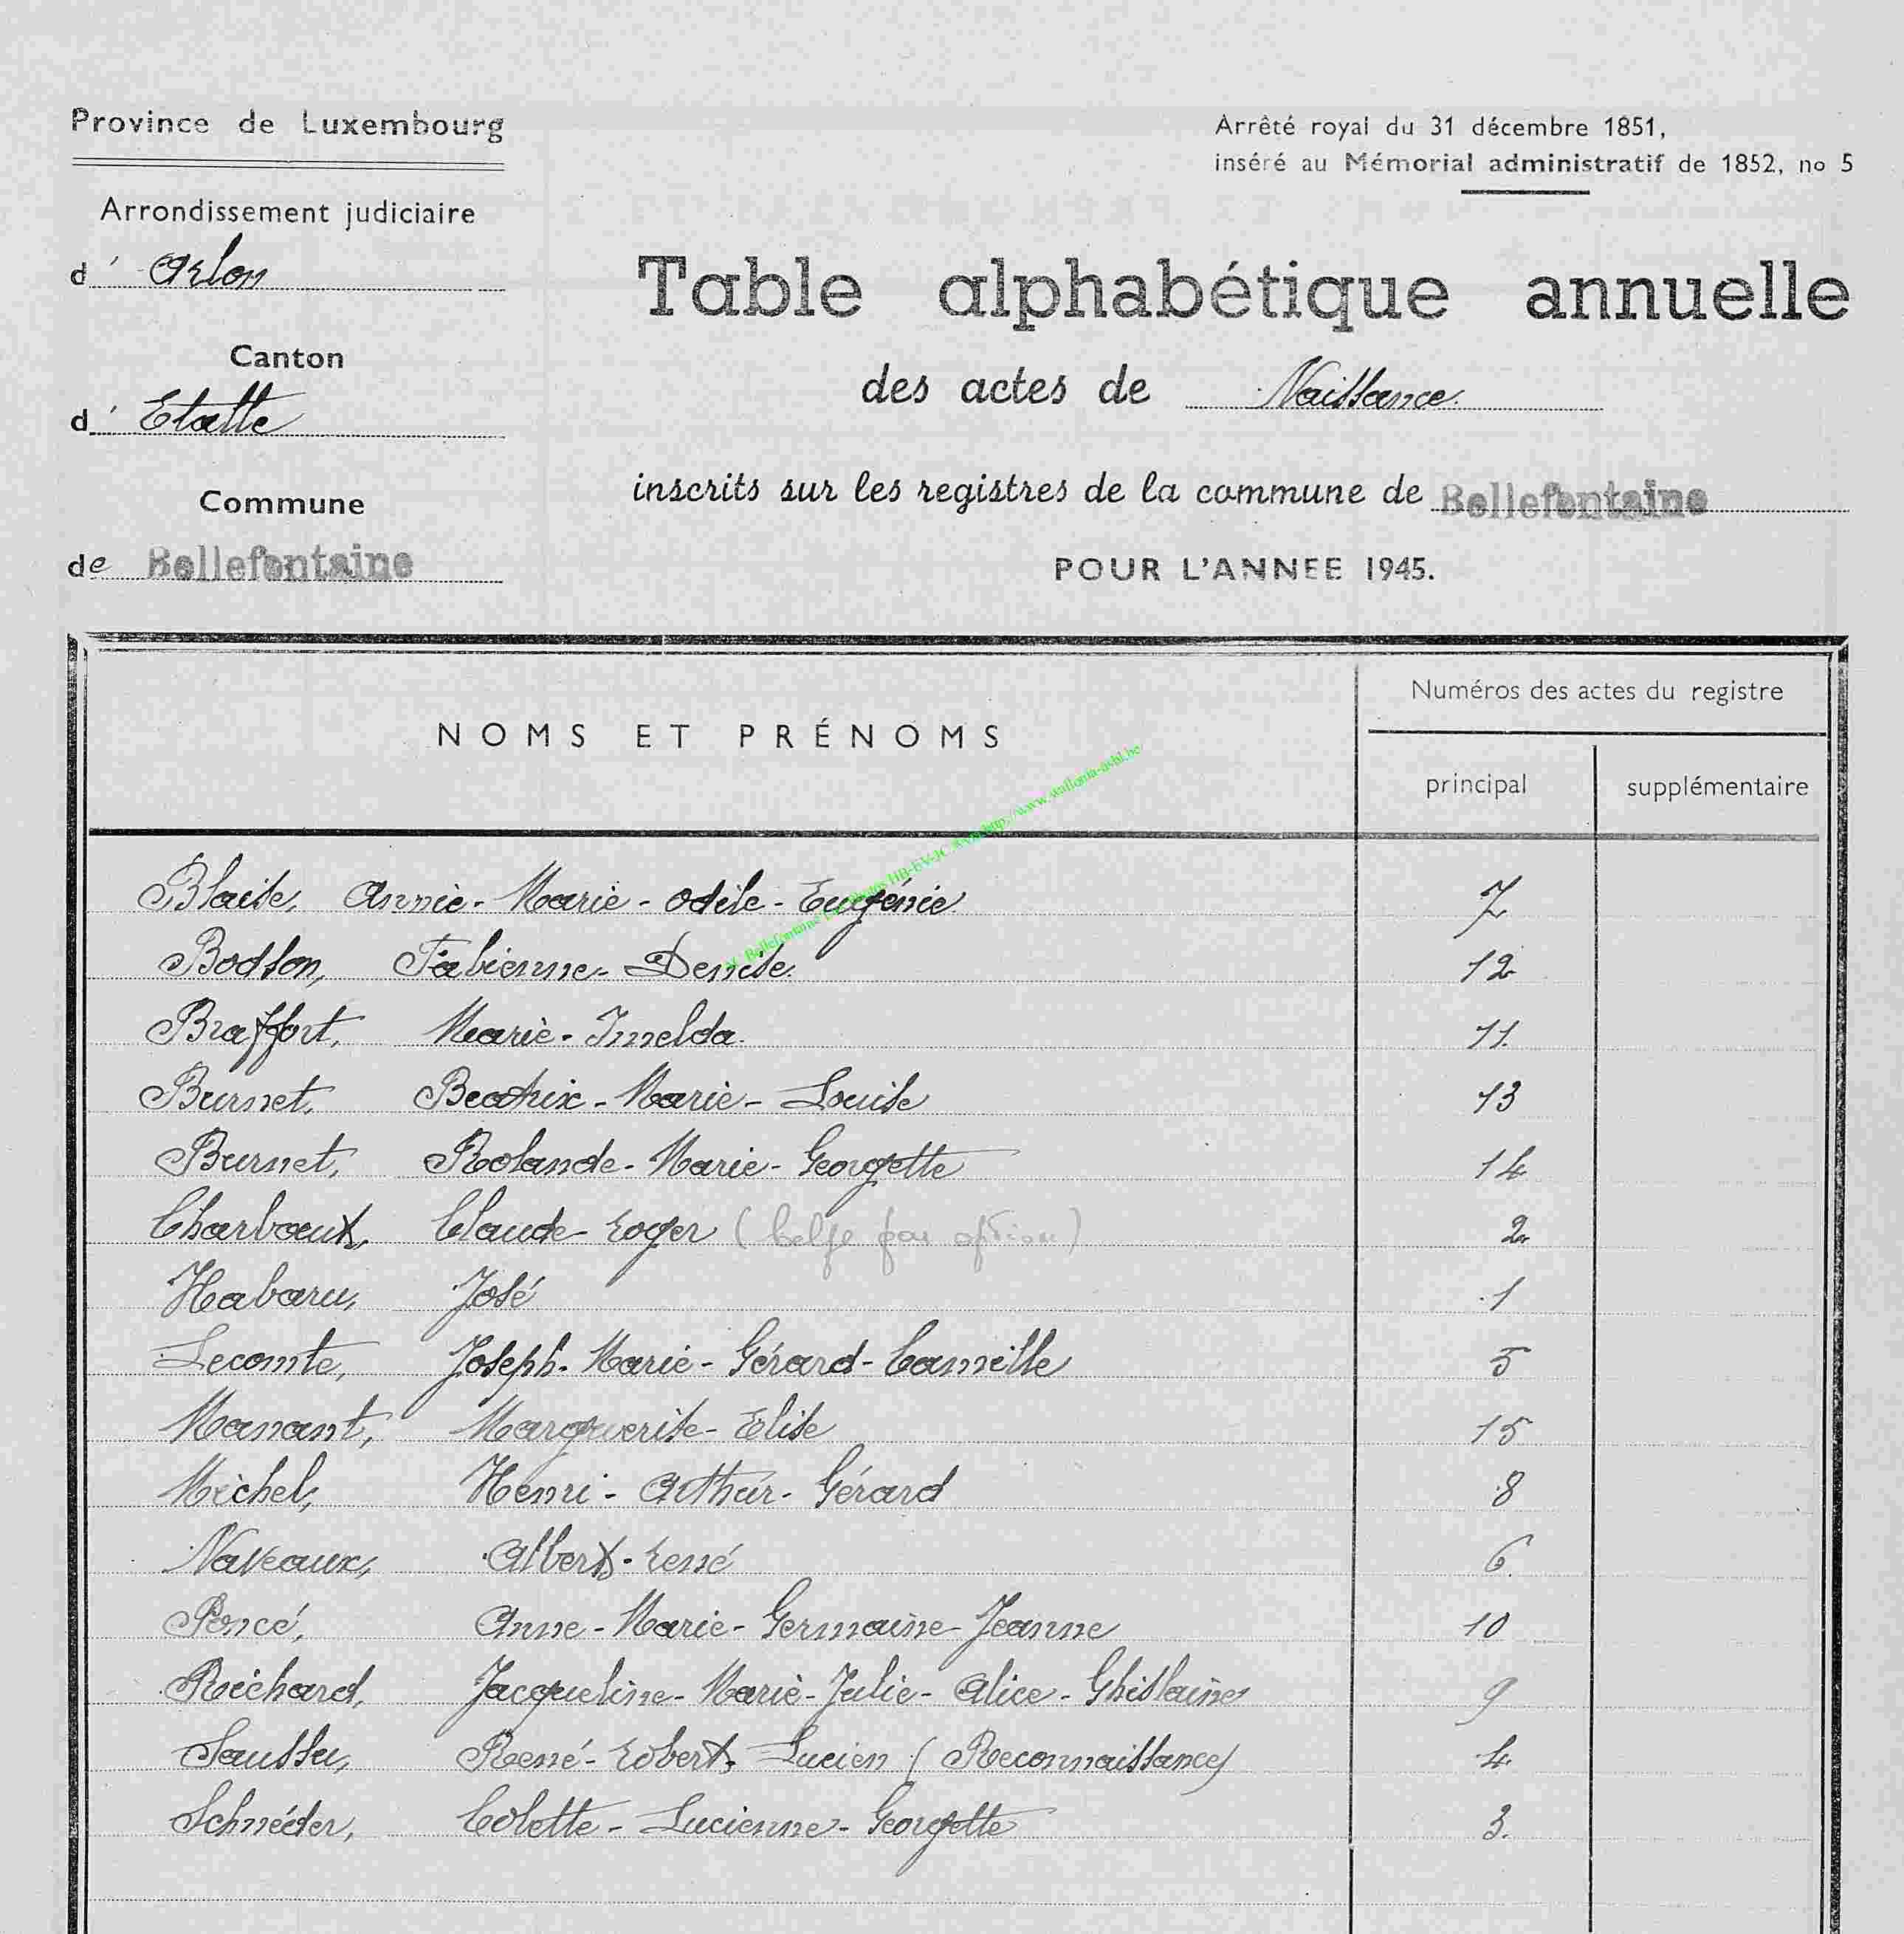 Province de Luxembourg
Arrêté royal du 31 décembre 1851,
inséré au Mémorial administratif de 1852, no 5
Arrondissement judiciaire
d' Arlon
Table alphabétique annuelle
Canton
d' Etalle
des actes de Naissance
Commune
de Bellefontaine
inscrits sur les registres de la commune de Bellefontaine
POUR L'ANNEE 1945.
NOMS ET PRÉNOMS
Numéros des actes du registre
principal supplémentaire
http://www.wallonia-asbl.be/
Blaise, Annie-Marie-Odile-Eugénie 7
Bodson, Fabienne-Denise. 12
Braffort, Marie-Imelda. 11
Burnet, Beatrix-Marie-Louise 13
Burnet, Rolande-Marie-Georgette 14
Charbœux, Claude-Roger (belge par option) 2
Habaru, José 1
Lecomte, Joseph-Marie-Gérard-Camille 5
Manant, Marguerite-Elise 15
Michel, Henri-Arthur-Gérard 8
Naveaux, Albert-René 6
Poncé, Anne-Marie-Germaine-Jeanne 10
Richard, Jacqueline-Marie-Julie-Alice-Ghislaine 9
Saussu, René-Robert-Lucien (Reconnaissance) 4
Schnéder, Colette-Lucienne-Georgette 3.